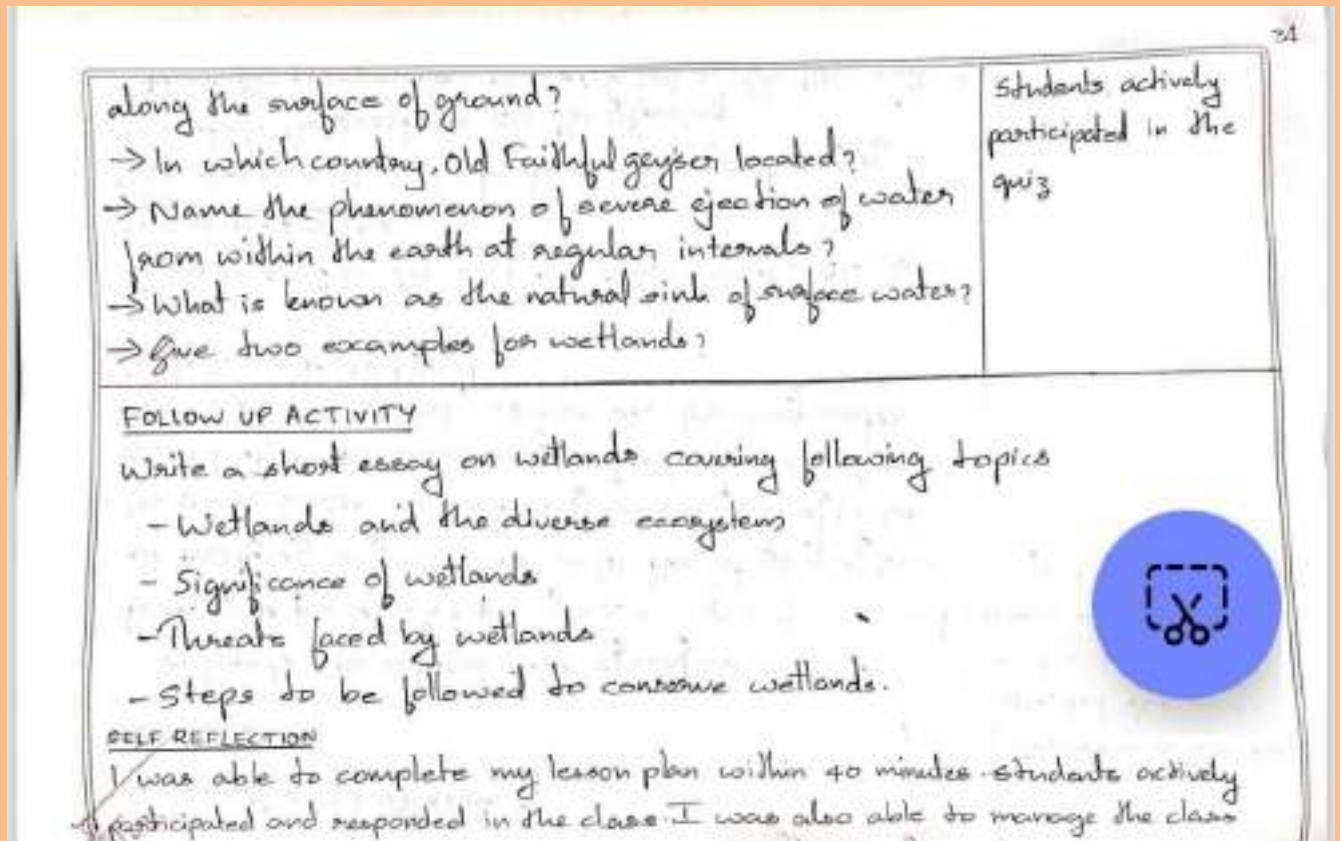 along the surface of ground?
→ In which country, Old Faithful geyser located?
→ Name the phenomenon of severe ejection of water
from within the earth at regular intervals?
→ What is known as the natural sink of surface water?
→ Give two examples for wetlands?
Students actively
participated in the
quiz
FOLLOW UP ACTIVITY
Write a short essay on wetlands covering following topics
- Wetlands and the diverse ecosystem
- Significance of wetlands
- Threats faced by wetlands
- Steps to be followed to conserve wetlands.
SELF REFLECTION
I was able to complete my lesson plan within 40 minutes. Students actively
participated and responded in the class. I was also able to manage the class